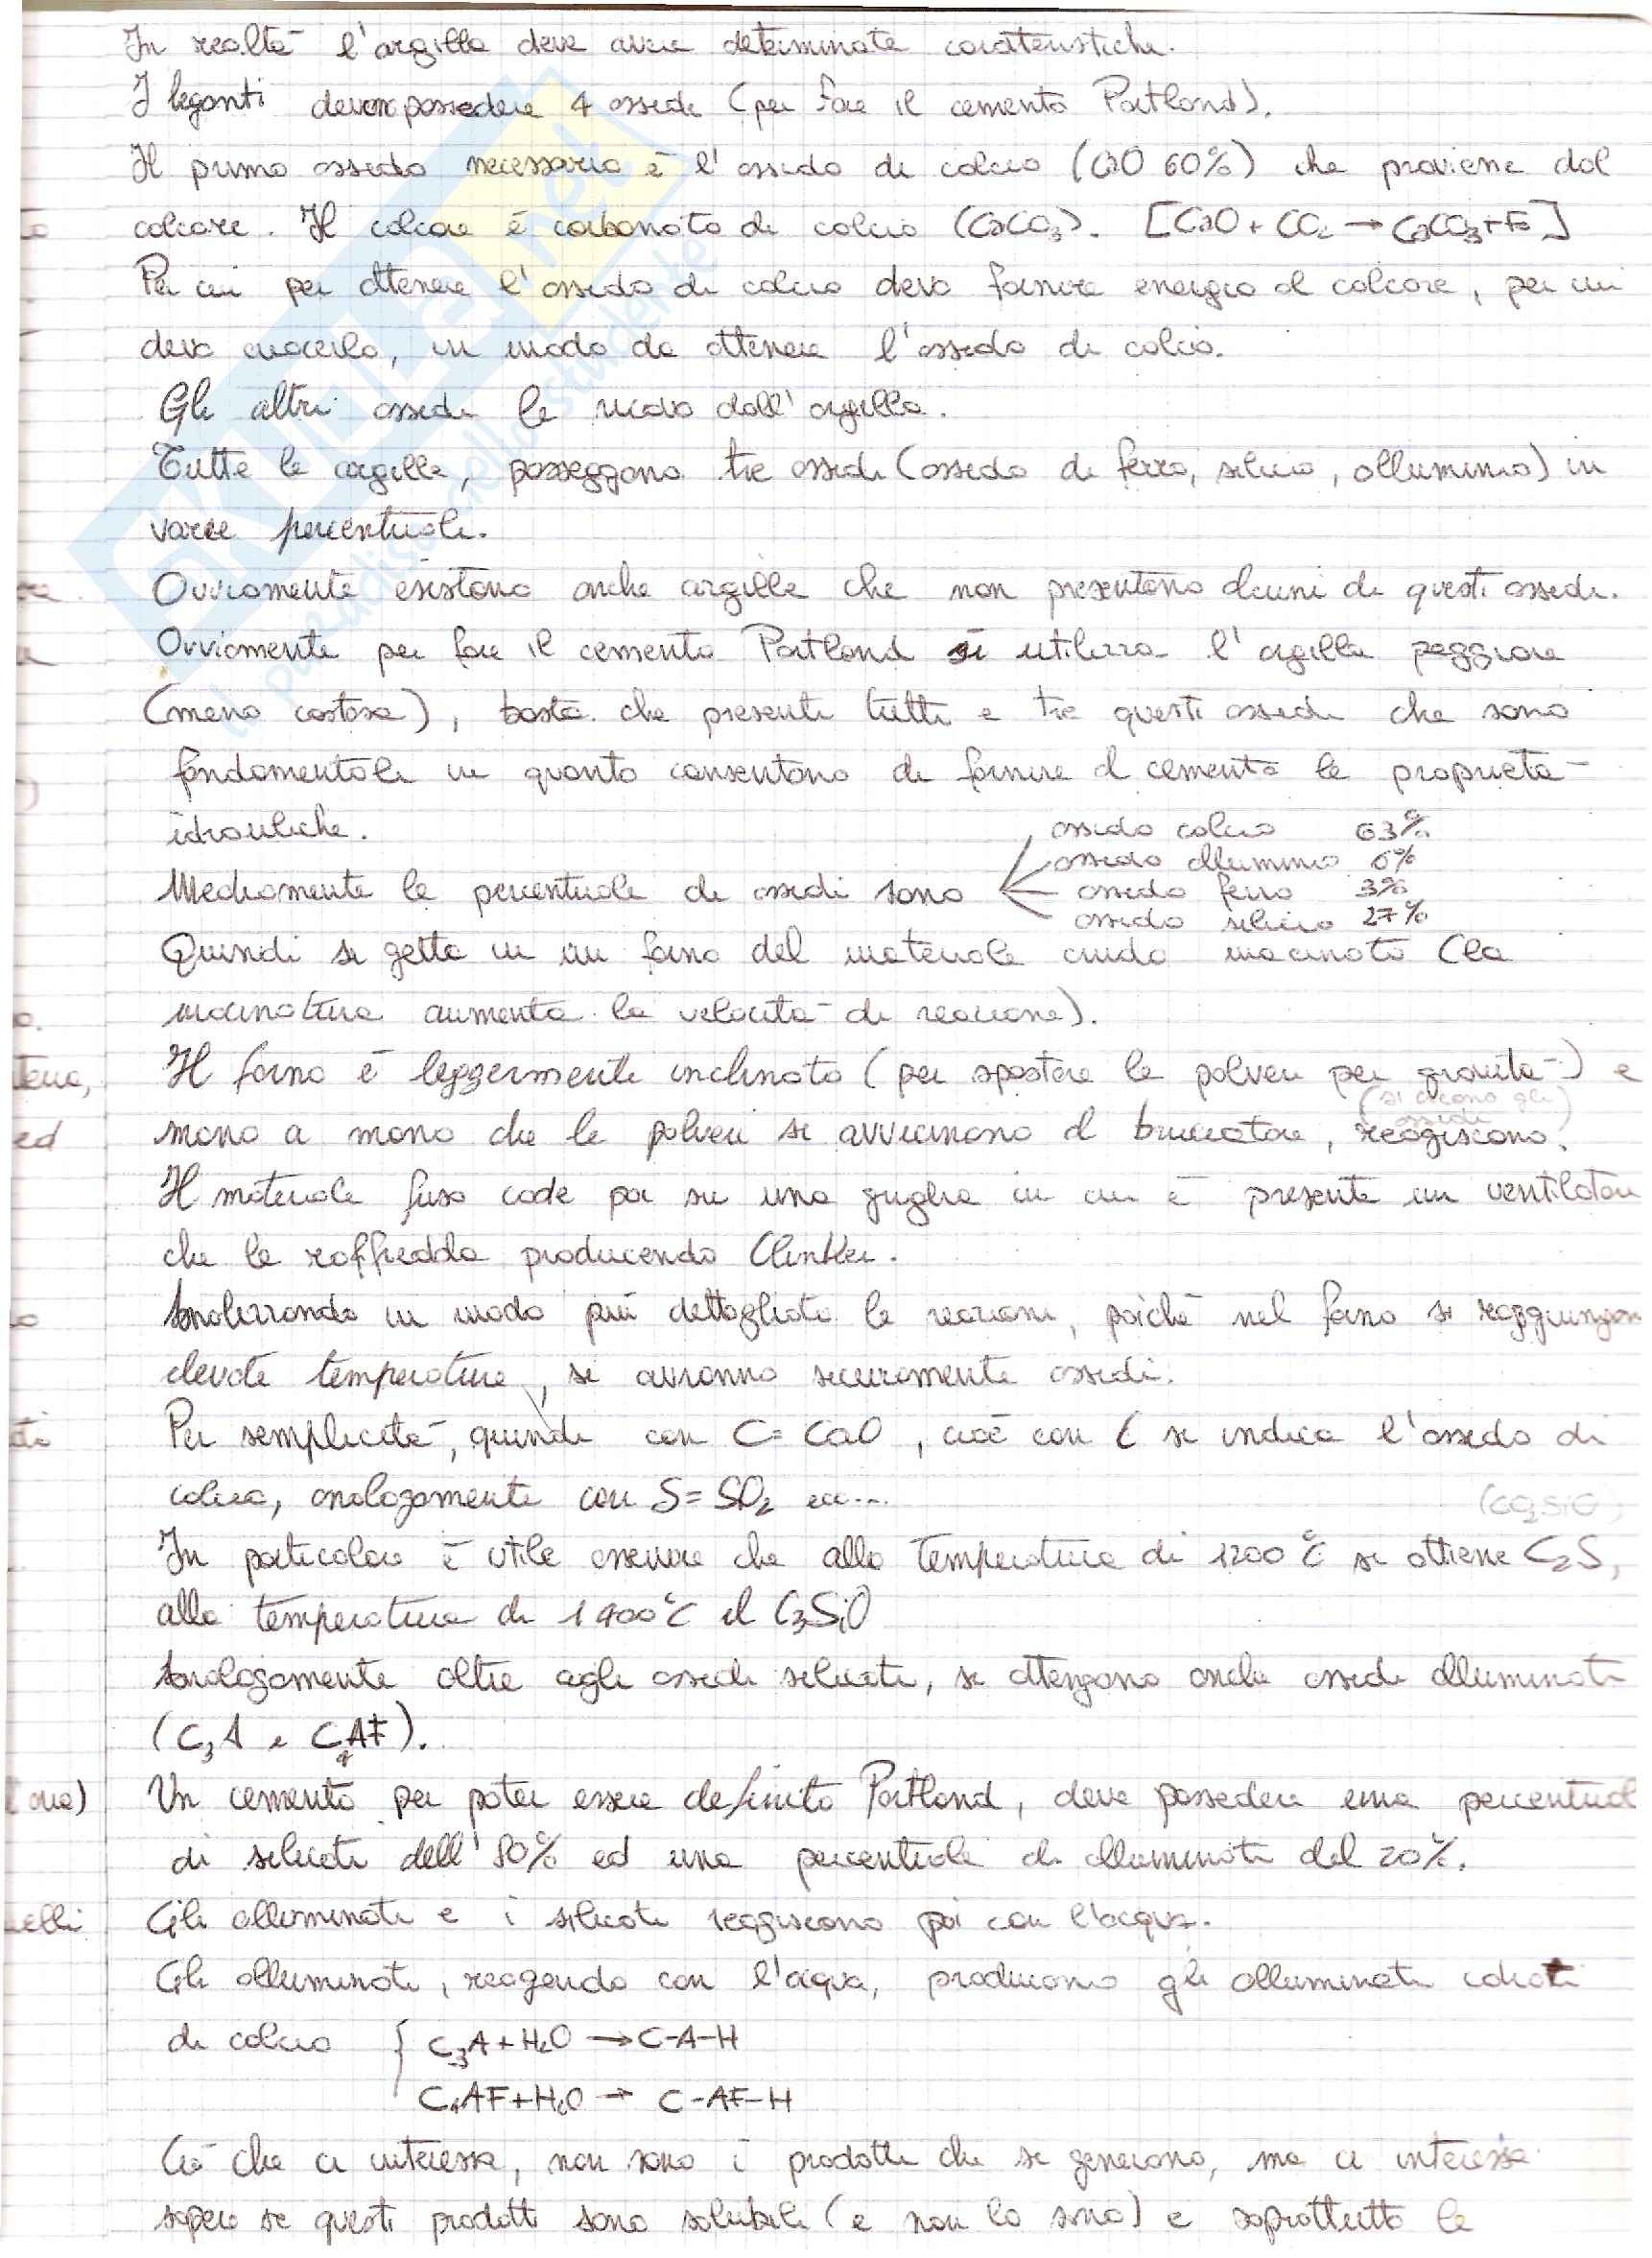 In realtà l'argilla deve avere determinate caratteristiche.
I leganti devono possedere 4 ossidi (per fare il cemento Portland).
Il primo ossido necessario è l'ossido di calcio (CaO 60%) che proviene dal
calcare. Il calcare è carbonato di calcio (CaCO3). [CaO + CO2 → CaCO3 + E]
Per cui per ottenere l'ossido di calcio devo fornire energia al calcare, per cui
devo cuocerlo, in modo da ottenere l'ossido di calcio.
Gli altri ossidi le ricavo dall'argilla.
Tutte le argille, posseggono tre ossidi (ossido di ferro, silicio, alluminio) in
varie percentuali.
Ovviamente esistono anche argille che non presentano alcuni di questi ossidi.
Ovviamente per fare il cemento Portland si utilizza l'argilla peggiore
(meno costosa), basta che presenti tutti e tre questi ossidi che sono
fondamentali in quanto consentono di fornire al cemento le proprietà
idrauliche.
ossido calcio 63%
ossido alluminio 6%
Mediamente le percentuali di ossidi sono ossido ferro 3%
ossido silicio 27%
Quindi si getta in un forno del materiale crudo macinato (la
macinatura aumenta la velocità di reazione).
Il forno è leggermente inclinato (per spostare le polveri per gravità) e
(si creano gli ossidi)
mano a mano che le polveri si avvicinano al bruciatore, reagiscono.
Il materiale fuso cade poi su una griglia in cui è presente un ventilatore
che le raffredda producendo Clinker.
Analizzando in modo più dettagliato le reazioni, poiché nel forno si raggiungon
elevate temperature, si avranno sicuramente ossidi.
Per semplicità, quindi con C = CaO, cioè con C si indica l'ossido di
calcio, analogamente con S = SiO2 ecc...
In particolare è utile osservare che alla temperatura di 1200°C si ottiene C2S,
alla temperatura di 1400°C il C3SiO
Analogamente oltre agli ossidi silicati, si ottengono anche ossidi alluminati
(C3A e C4AF).
Un cemento per poter essere definito Portland, deve possedere una percentual
di silicati dell'80% ed una percentuale di alluminati del 20%.
Gli alluminati e i silicati reagiscono poi con l'acqua.
Gli alluminati, reagendo con l'acqua, producono gli alluminati idrati
di calcio { C3A + H2O → C-A-H
C4AF + H2O → C-AF-H
Ciò che ci interessa, non sono i prodotti che si generano, ma ci interessa
sapere se questi prodotti sono solubili (e non lo sono) e soprattutto le